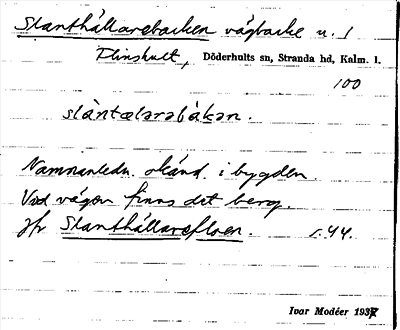 Slanthållarebacken vägbacke n. 1
Flinshult, Döderhults sn, Stranda hd, Kalm. l.
100
slàntælarabákan.
Namnanledn. okänd i bygden.
Vid vägen finns det berg.
Jfr Slanthållarefloen. s. 44.
Ivar Modéer 1937